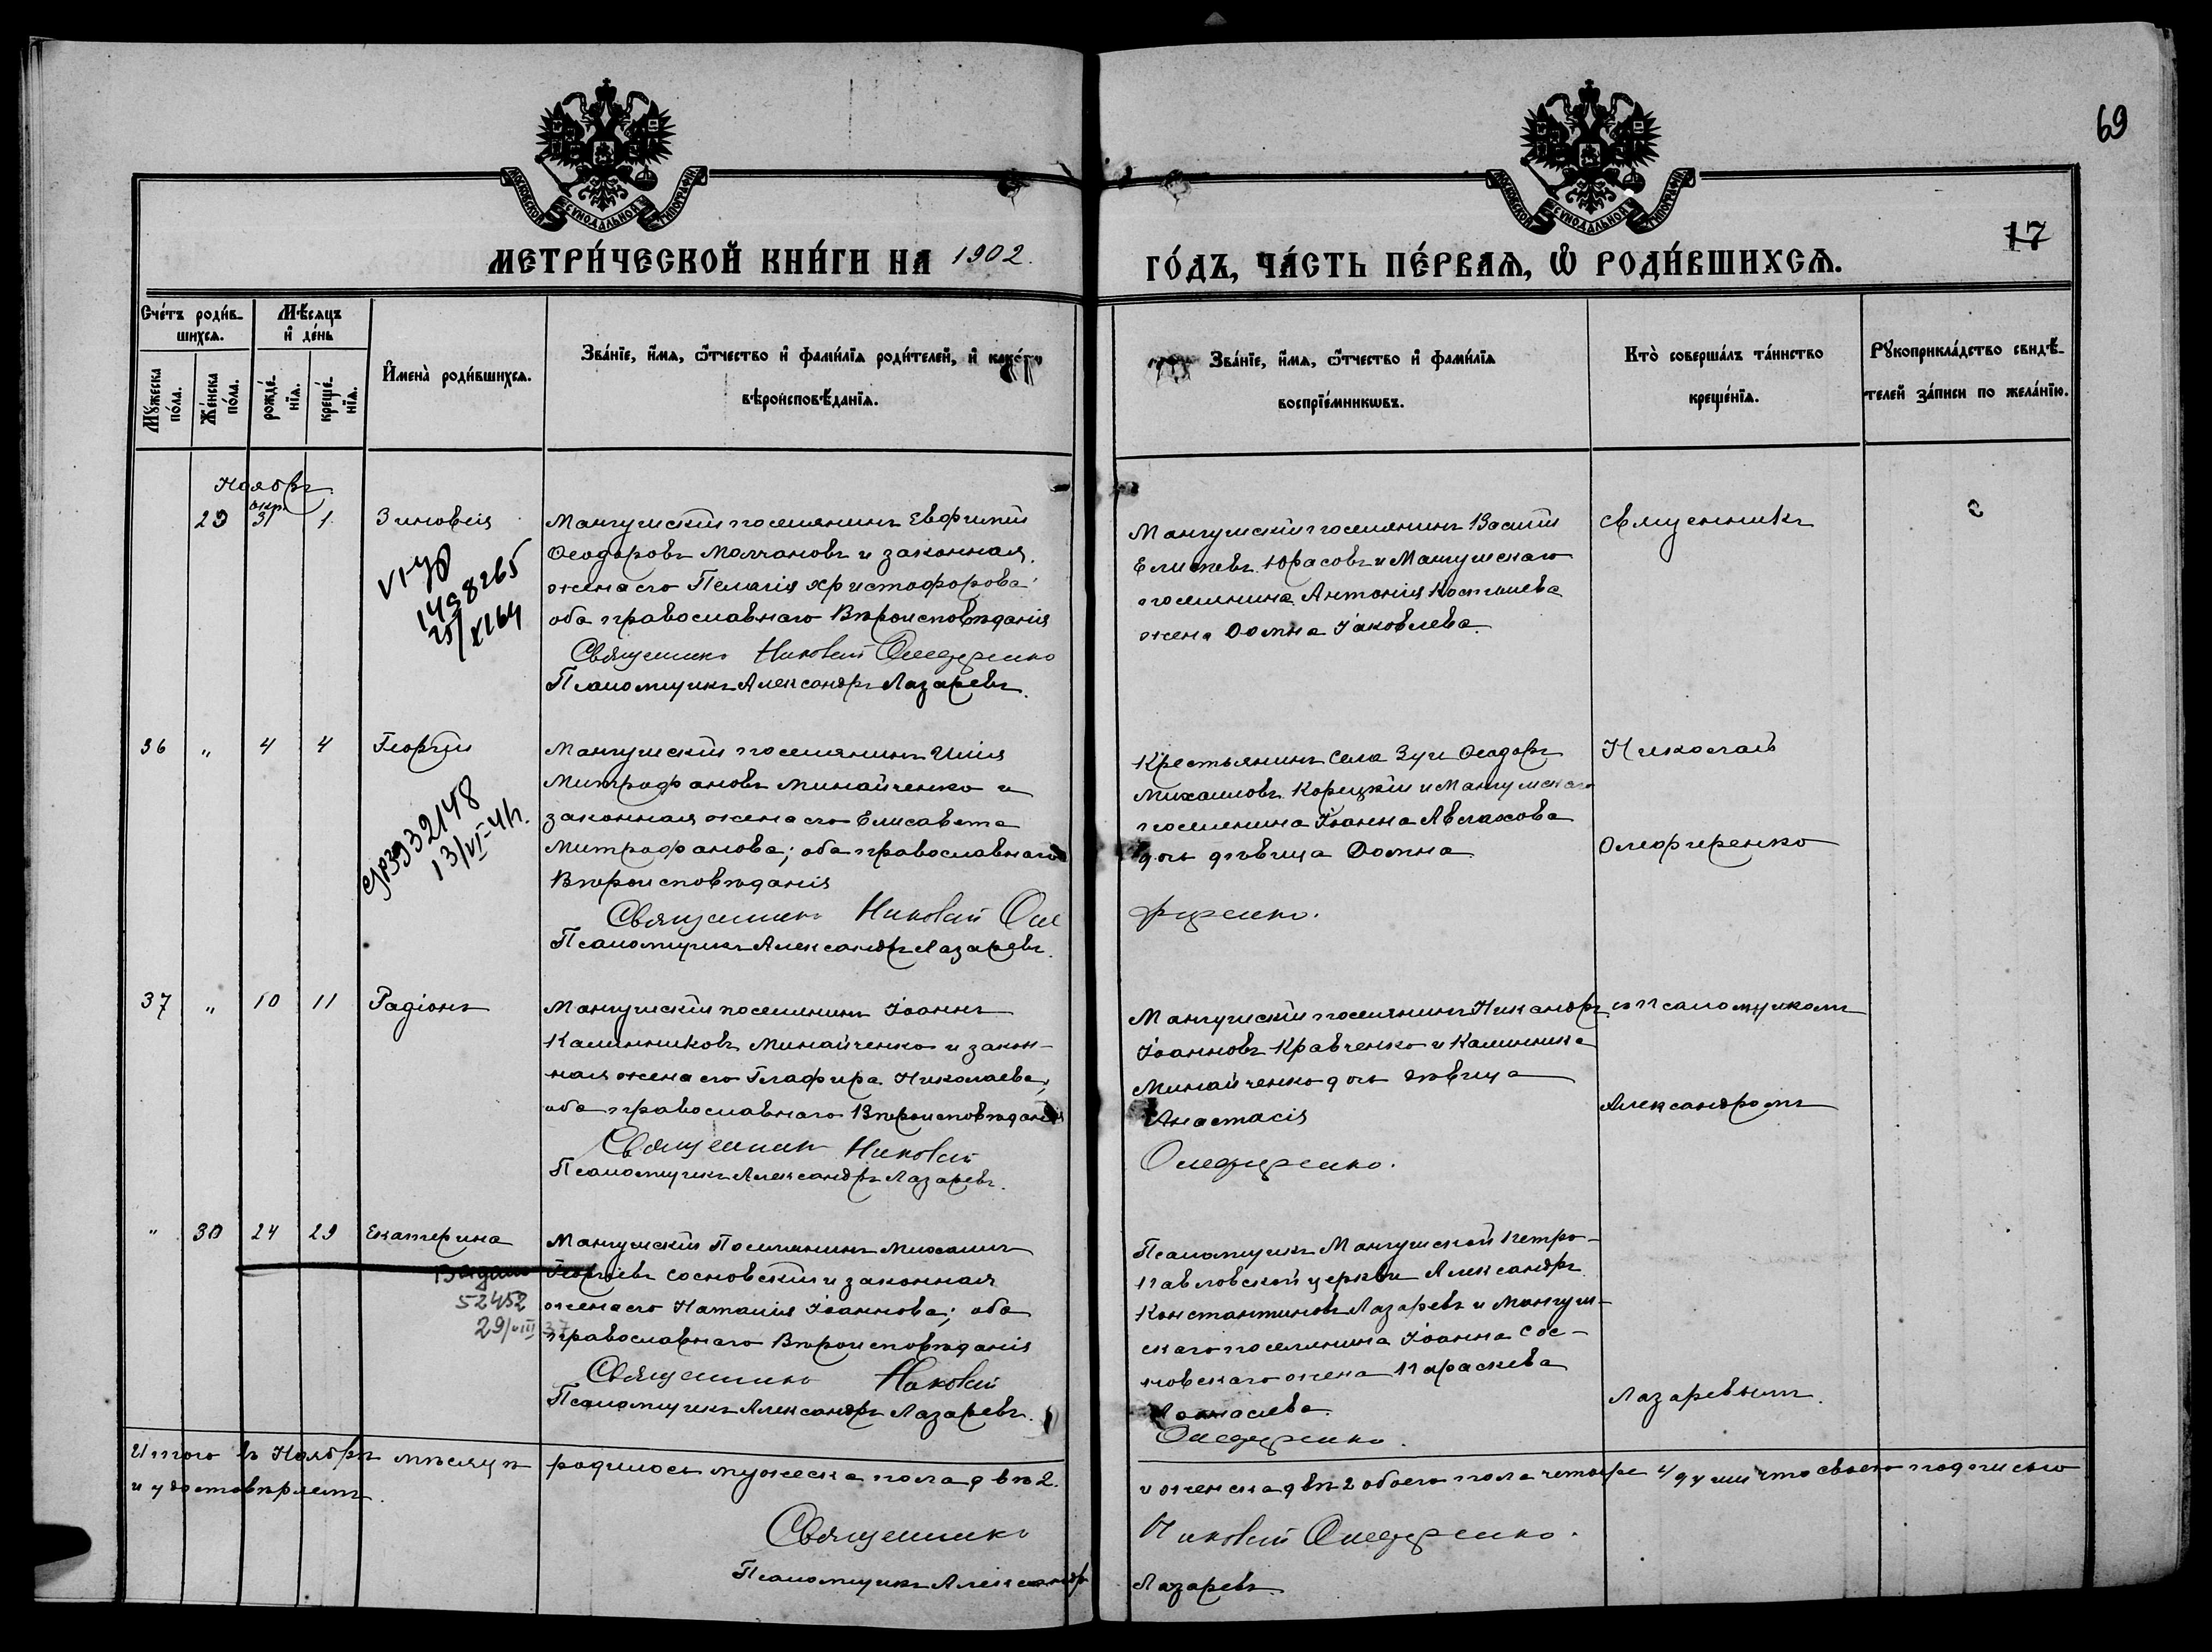 69
17
МОСКОВСКОЙ СѴНОДАЛЬНОЙ ТИПОГРАФІИ
МОСКОВСКОЙ СѴНОДАЛЬНОЙ ТИПОГРАФІИ
МЕТРИ́ЧЕСКОЙ КНИ́ГИ НА 1902.
ГО́ДЪ, ЧА́СТЬ ПЕ́РВАЯ, Ѡ҆ РОДИ́ВШИХСЯ.
Сче́тъ роди́в-
шихся.
Мѣ́сяцъ
и҆ де́нь
Мꙋ́жеска
по́ла.
Же́нска
по́ла.
рожде́-
нїя.
креще́-
нїя.
И҆мена̀ роди́вшихся.
Зва́нїе, и҆́мя, ѻ҆́тчество и҆ фами́лїя роди́телей, и҆ како́гѡ
вѣроисповѣ́данїя.
Зва́нїе, и҆́мя, ѻ҆́тчество и҆ фами́лїя
воспрїе́мникѡвъ.
Кто̀ соверша́лъ та́инство
креще́нїя.
Рꙋкоприкла́дство свидѣ́-
телей за́писи по жела́нїю.
Ноябрь
29 окт. 31 1 Зиновія
Мангушскій поселянинъ Евфимій
Ѳеодоровъ Молчановъ и законная
жена его Пелагія Христофорова;
оба православнаго Вѣроисповѣданія
Священникъ Николай Олеференко
Псаломщикъ Александръ Лазаревъ.
Мангушскій поселянинъ Василій
Елисеевъ Юрасовъ и Мангушскаго
поселянина Антонія
жена Домна Іаковлева.
Священникъ
36 " 4 4 Георгій
3932148
13/VI-41г.
Мангушскій поселянинъ Илія
Митрофановъ Минайченко и
законная жена его Елисавета
Митрофанова; оба православнаго
Вѣроисповѣданія
Священникъ Николай Оле
Псаломщикъ Александръ Лазаревъ.
Крестьянинъ села Зуи Ѳеодоръ
Михаиловъ Корецкій и Мангушскаго
поселянина Іоанна Авлахова
дочь дѣвица Домна
ференко.
Николай
Олеференко
37 " 10 11 Радіонъ
Мангушскій поселянинъ Іоаннъ
Калинниковъ Минайченко и закон-
ная жена его Глафира Николаева;
оба православнаго Вѣроисповѣданія
Священникъ Николай
Псаломщикъ Александръ Лазаревъ.
Мангушскій поселянинъ Никандръ
Іоанновъ Кравченко и Калинника
Минайченко дочь дѣвица
Анастасія
Олеференко.
съ псаломщикомъ
Александромъ
" 30 24 29 Екатерина
Выдано
52452
29/VIII 37
Мангушскій Поселянинъ Михаилъ
Георгіевъ Сосновскій и законная
жена его Наталія Іоаннова; оба
православнаго Вѣроисповѣданія
Священникъ Николай
Псаломщикъ Александръ Лазаревъ.
Псаломщикъ Мангушской Петро-
павловской церкви Александръ
Константиновъ Лазаревъ и Мангуш-
скаго поселянина Іоанна Сос-
новскаго жена Параскева
Олеференко.
Лазаревымъ.
Итого въ Ноябрѣ мѣсяцѣ родилось мужеска пола двѣ 2.
и женска двѣ 2 обоего пола четыре 4 души что своею подписью
и удостовѣряемъ.
Священникъ Николай Олеференко.
Псаломщикъ Александръ Лазаревъ.